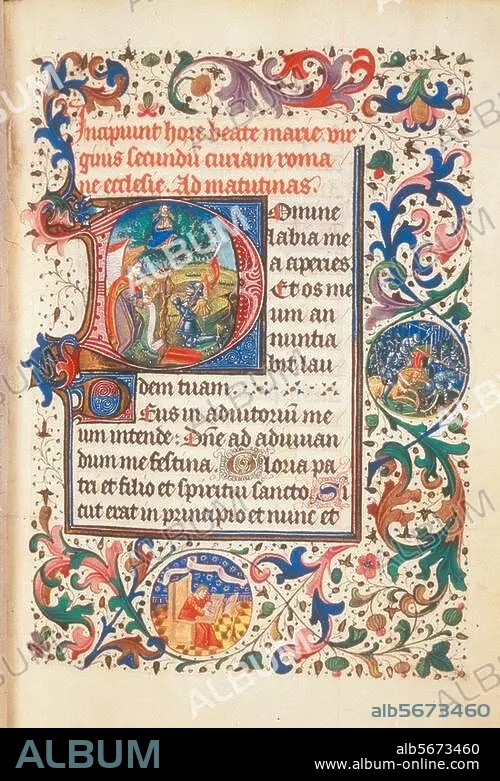 Incipiunt hore beate marie vir
ginis secundū curiam roma
ne ecclesie. Ad matutinas.
Domine
labia me
a aperies
Et os me
um an
nuntia
bit lau
dem tuam
Deus in adiutoriū me
um intende: Dn̄e ad adiuuan
dum me festina. Gloria pa
tri et filio et spiritui sancto Si
cut erat in principio et nunc et
ALBUM
alb5673460
ALBUM
alb5673460
www.album-online.com